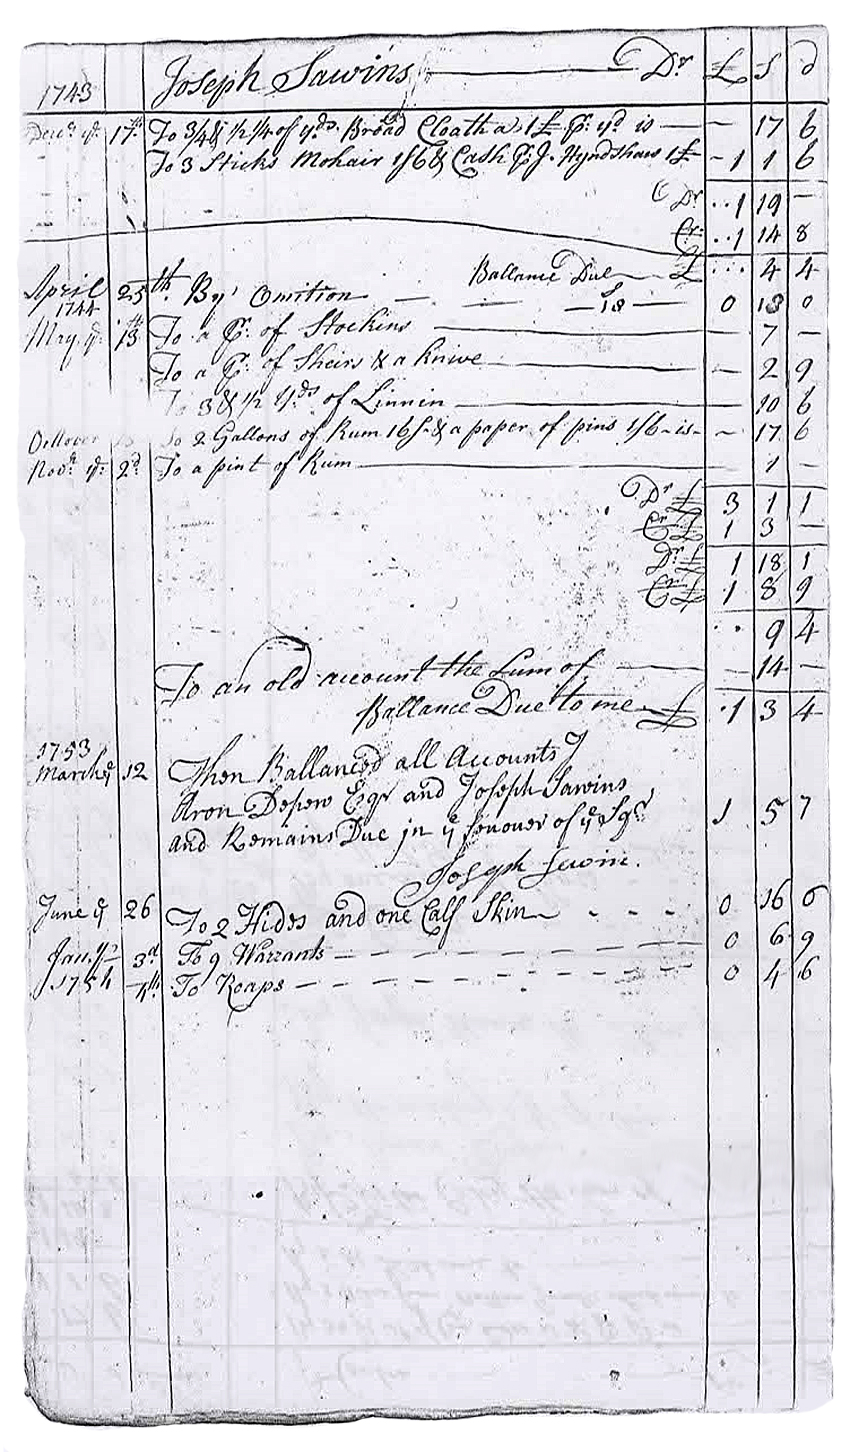 1743 Joseph Sawins Dr £ S d
Decr ye 17th To 3/4 & 1/2 1/4 of yds Broad Cloath a 1£ Pr yd is — 17 6
To 3 Sticks Mohair 1/6 & Cash Pr J. Hyndshaw 1£ - 1 1 6
Dr 1 19 —
Cr 1 14 8
Ballance Due £ 4 4
April 1744 25th By Omition — 18 — 0 18 0
May ye 13th To a Pr of Stockins — 7 —
To a Pr of Sheirs & a Knive — 2 9
To 3 & 1/2 Yds of Linnin — 10 6
October To 2 Gallons of Rum 16s & a paper of pins 1/6 - is - 17 6
Novr ye 2d To a pint of Rum — 1 —
Dr £ 3 1 1
Cr £ 1 3 —
Dr £ 1 18 1
Cr £ 1 8 9
9 4
To an old account the Sum of — 14 —
Ballance Due to me £ 1 3 4
1753
March ye 12 Then Ballanced all Accounts
Aron Depew Eqr and Joseph Sawins 1 5 7
and Remains Due in ye favouer of ye Sqr
Joseph Sewin.
June ye 26 To 2 Hides and one Calf Skin 0 16 6
Jan. ye 3rd To 9 Warrants 0 6 9
1754 4th To Roaps 0 4 6